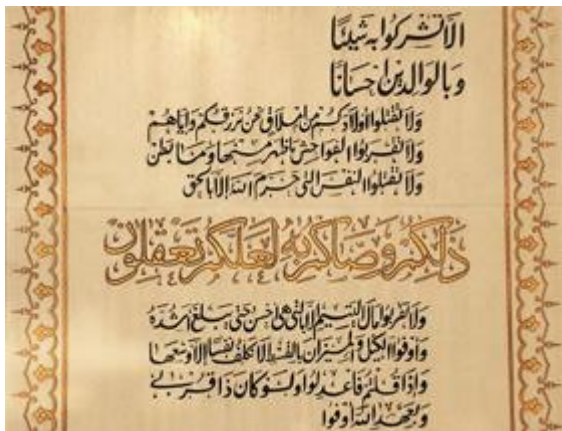 الا تشركوا به شيئا
وبالوالدين احسانا
ولا تقتلوا اولادكم من املاق نحن نرزقكم واياهم
ولا تقربوا الفواحش ما ظهر منها وما بطن
ولا تقتلوا النفس التي حرم الله الا بالحق
ذلكم وصاكم به لعلكم تعقلون
ولا تقربوا مال اليتيم الا بالتي هي احسن حتى يبلغ اشده
واوفوا الكيل والميزان بالقسط لا نكلف نفسا الا وسعها
واذا قلتم فاعدلوا ولو كان ذا قربى
وبعهد الله اوفوا